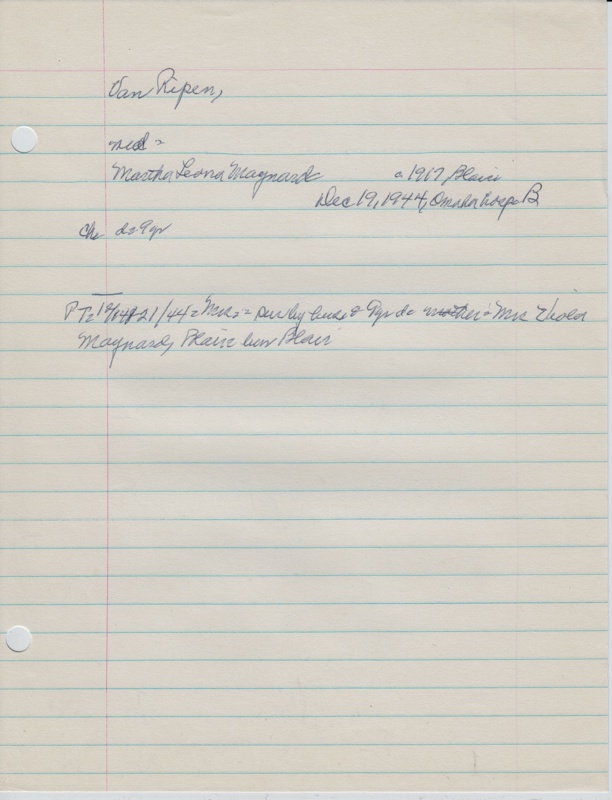 Van Ripen,
md =
Martha Leona Maynard c 1917 Blair
Dec 19, 1944, Omaha hosp B
Ch d= 9yr
PT= 21/44 = Mrs = = sur by husb & 9yr d= mother = Mrs Viola
Maynard, Blair bur Blair